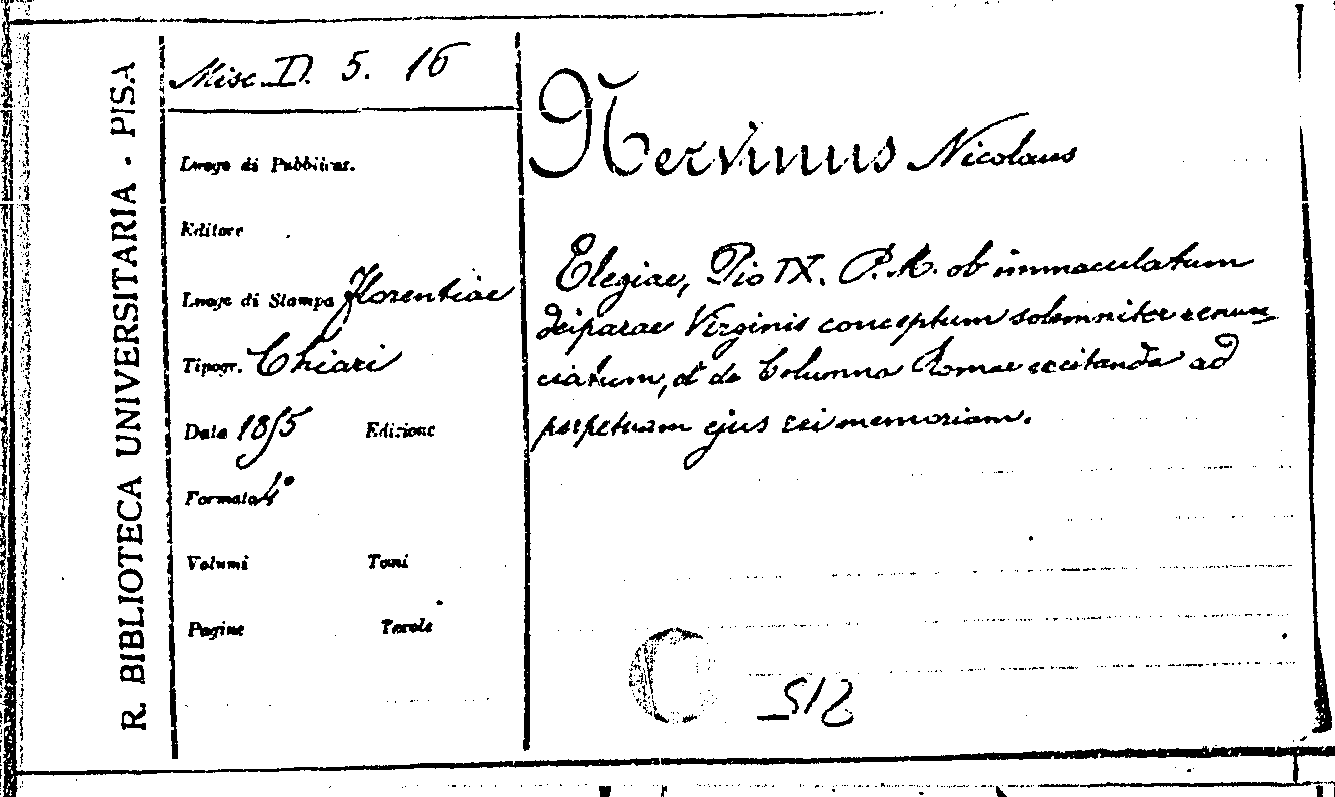 R. BIBLIOTECA UNIVERSITARIA - PISA
Misc. D. 5. 16
Luogo di Pubblicaz.
Editore
Luogo di Stampa Florentiae
Tipogr. Chiari
Data 1855 Edizione
Formato 4°
Volumi Tomi
Pagine Tavole
Nervinus Nicolaus
Elegiae, Pio IX. P. M. ob immaculatum
deiparae Virginis conceptum solemniter renun
ciatum, et de Columna Romae excitanda ad
perpetuam ejus rei memoriam.
C
512